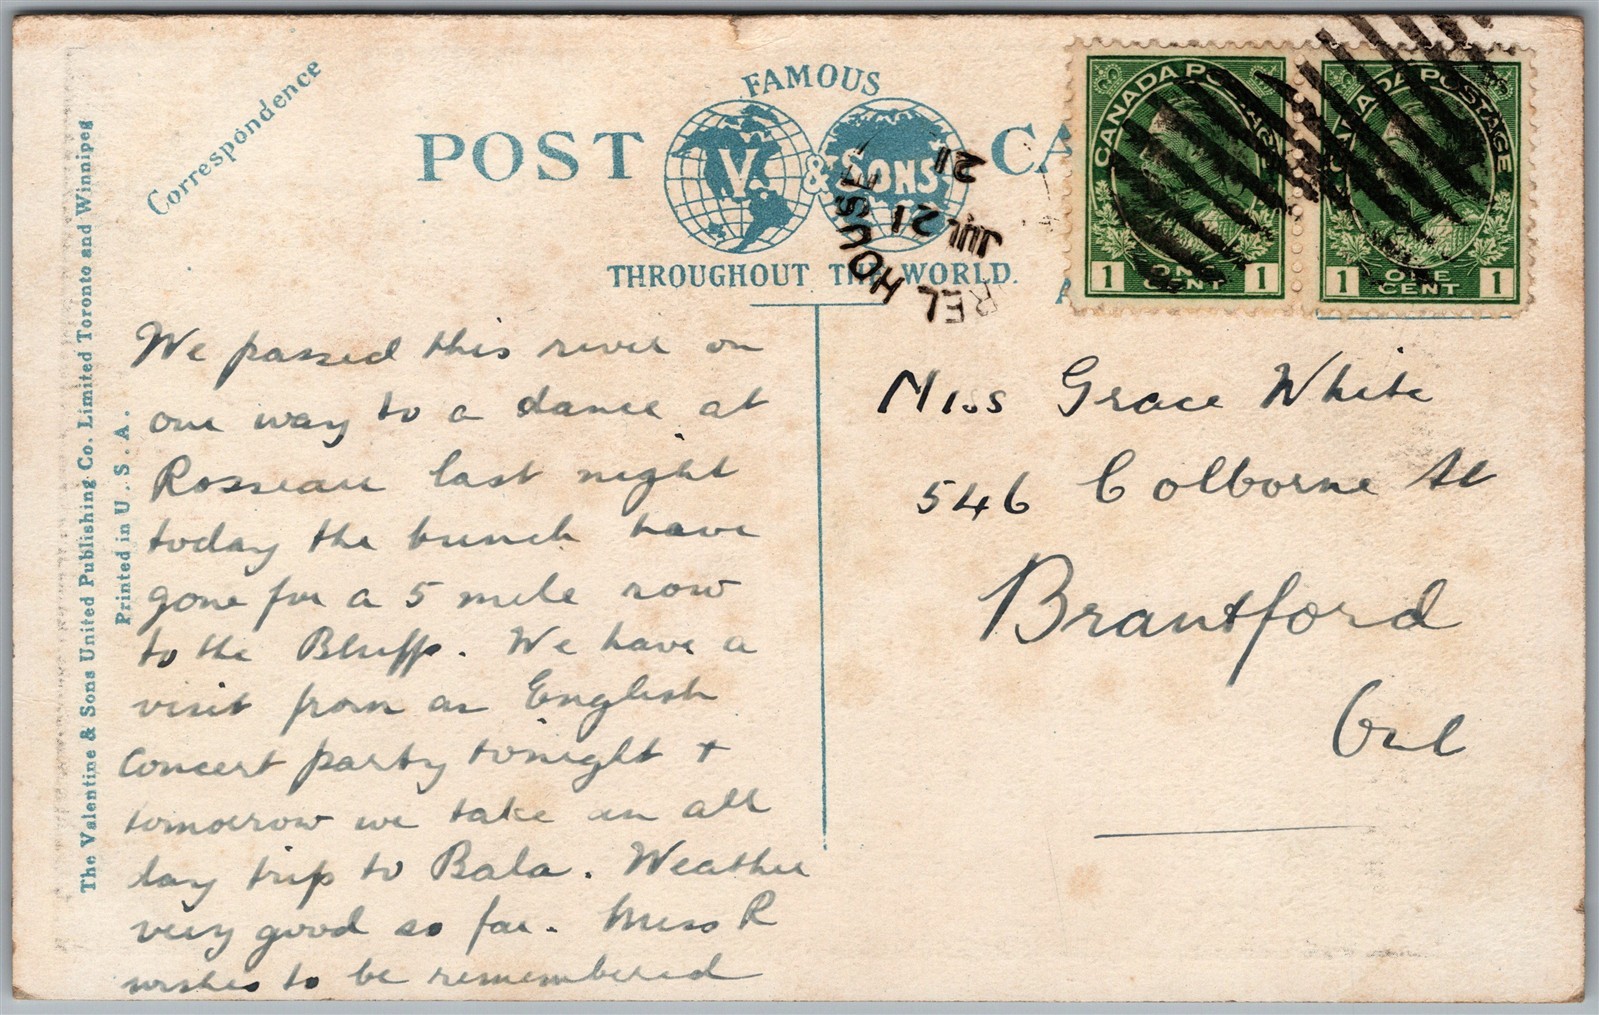 Correspondence
The Valentine & Sons United Publishing Co. Limited Toronto and Winnipeg
Printed in U. S. A.
FAMOUS
POST CA
V. & SONS
THROUGHOUT THE WORLD.
REL HOUSE
JUL 21
21
CANADA POSTAGE
1 ONE CENT 1
CANADA POSTAGE
1 ONE CENT 1
We passed this river on
our way to a dance at
Rosseau last night
today the bunch have
gone for a 5 mile row
to the Bluffs. We have a
visit from an English
concert party tonight +
tomorrow we take an all
day trip to Bala. Weather
very good so far. Miss R
wishes to be remembered
Miss Grace White
546 Colborne St
Brantford
Ont